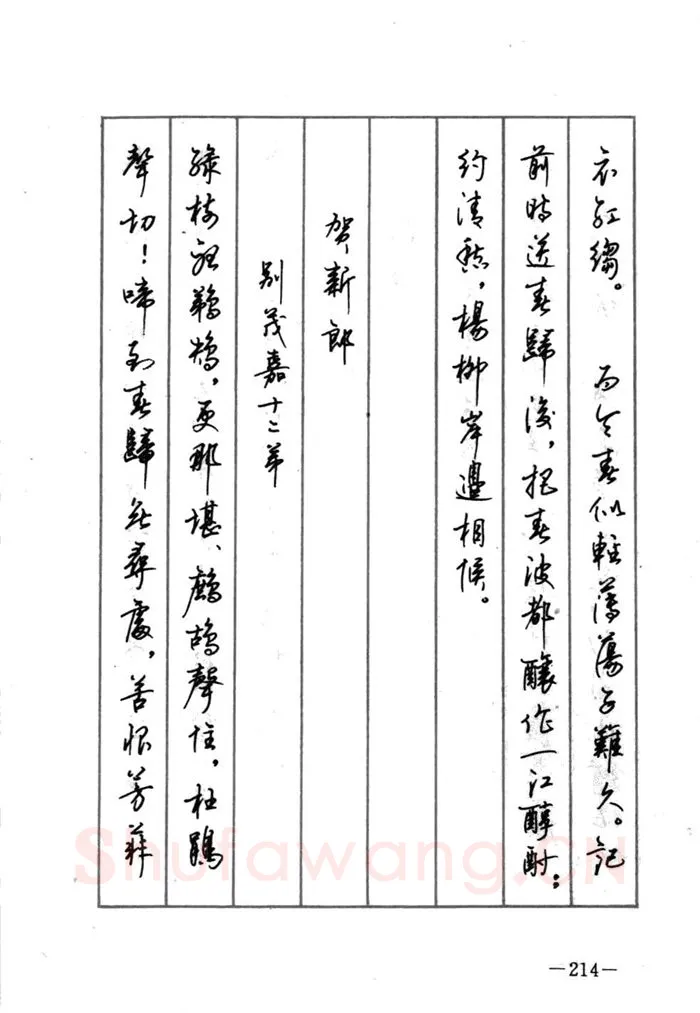 衣紅縐。 而今春似輕薄蕩子難久。記
前時送春歸後，把春波都釀作一江醇酎；
約清愁，楊柳岸邊相候。
賀新郎
别茂嘉十二弟
緑樹聽鵜鴂，更那堪、鷓鴣聲住，杜鵑
聲切！啼到春歸無尋處，苦恨芳菲
—214—
Shufawang.CN